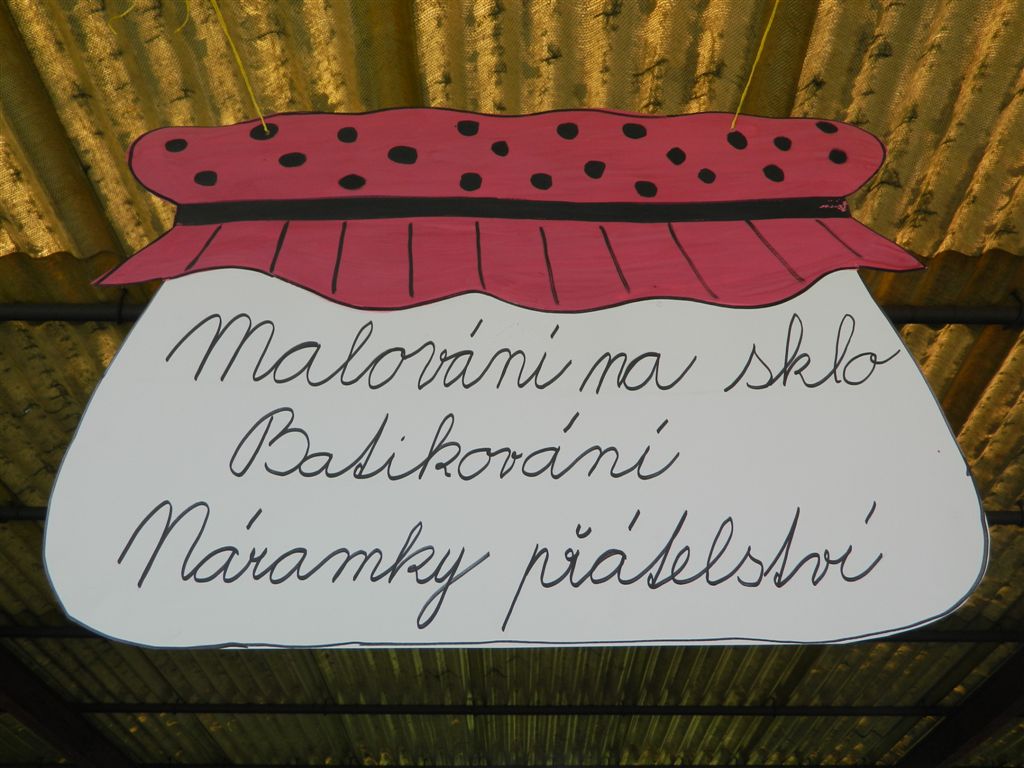 Malování na sklo
Batikování
Náramky přátelství